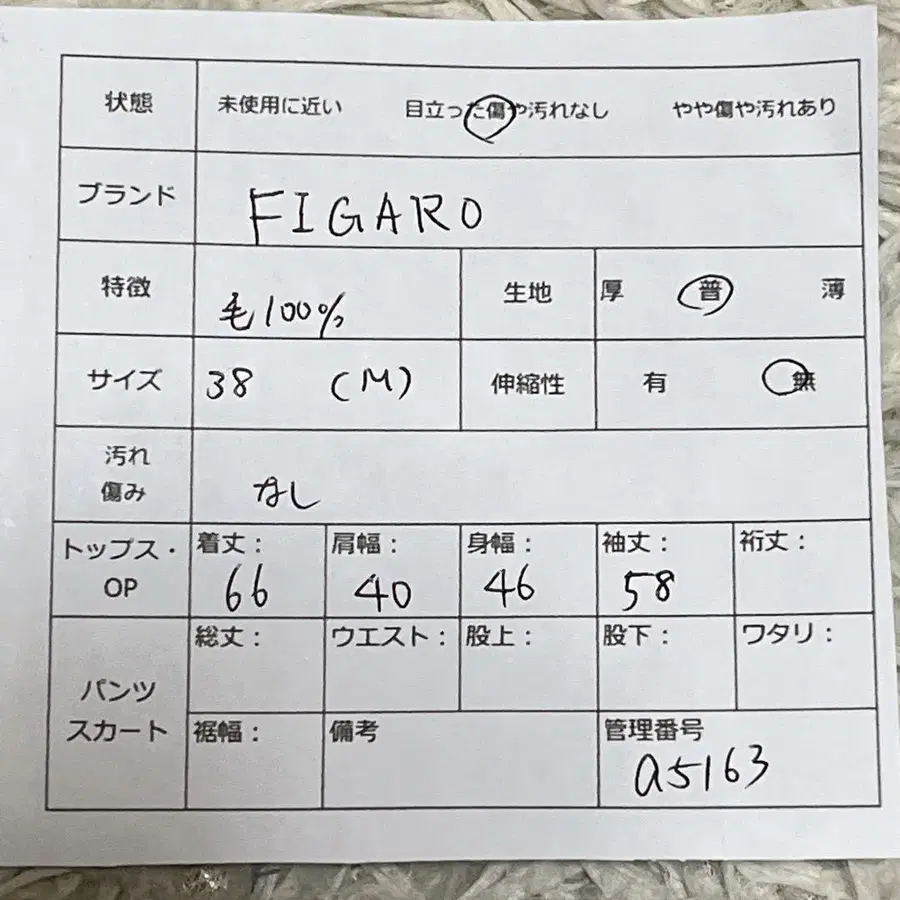 状態 未使用に近い 目立った傷や汚れなし やや傷や汚れあり
ブランド FIGARO
特徴 毛100% 生地 厚 普 薄
サイズ 38 (M) 伸縮性 有 無
汚れ
傷み なし
トップス・
OP
着丈: 肩幅: 身幅: 袖丈: 裄丈:
66 40 46 58
パンツ
スカート
総丈: ウエスト: 股上: 股下: ワタリ:
裾幅: 備考 管理番号
a5163